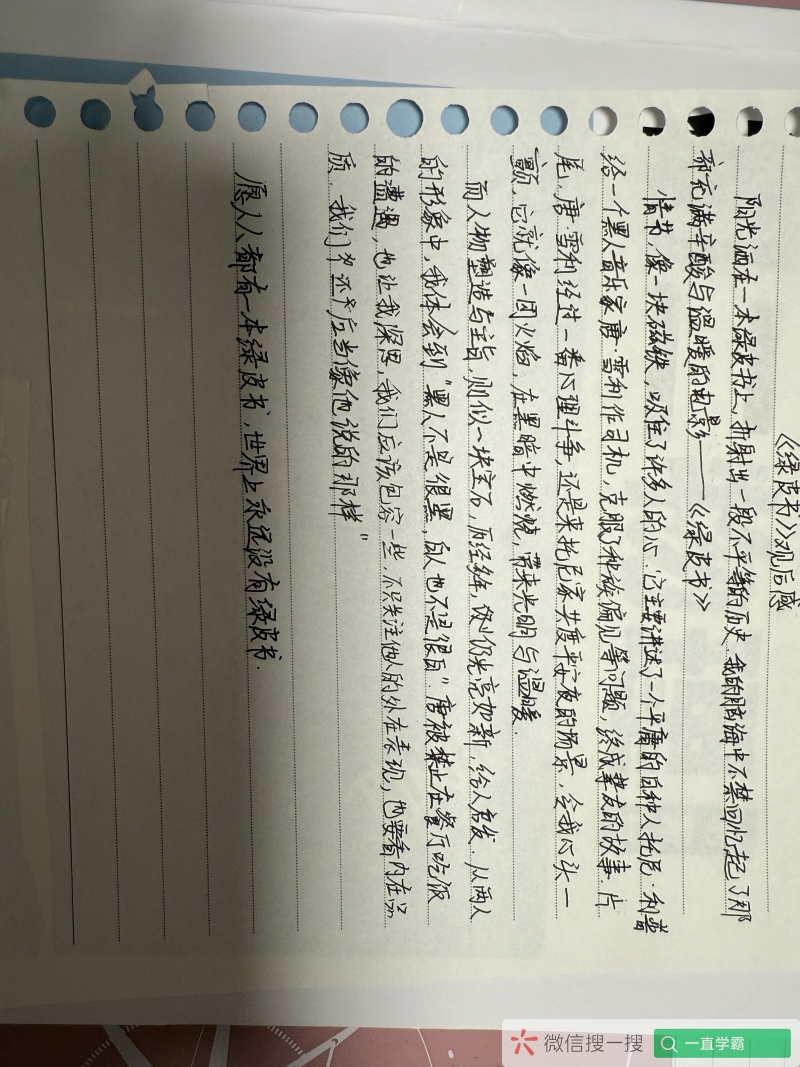 《绿皮书》观后感
阳光洒在一本绿皮书上，折射出一段不平等的历史，我的脑海中不禁回忆起了那
部充满辛酸与温暖的电影——《绿皮书》
情节，像一块磁铁，吸住了许多人的心．它主要讲述了一个平庸的白种人托尼·利普
给一个黑人音乐家唐·雪利作司机，克服了种族偏见等问题，终成挚友的故事．片
尾，唐·雪利经过一番心理斗争，还是来托尼家共度平安夜的场景，令我心头一
颤，它就像一团火焰，在黑暗中燃烧，带来光明与温暖．
而人物塑造与主旨，则似一块宝石，历经，仍光亮如新，给人启发．从两人
的形象中，我体会到"黑人不是很黑，白人也不是很白"唐被禁止在餐厅吃饭
的遭遇，也让我深思，我们应该包容一些，不只关注他人的外在表现，也要看内在品
质．我们应当像他说的那样"
愿人人都有一本绿皮书，世界上永远没有绿皮书．
微信搜一搜
一直学霸